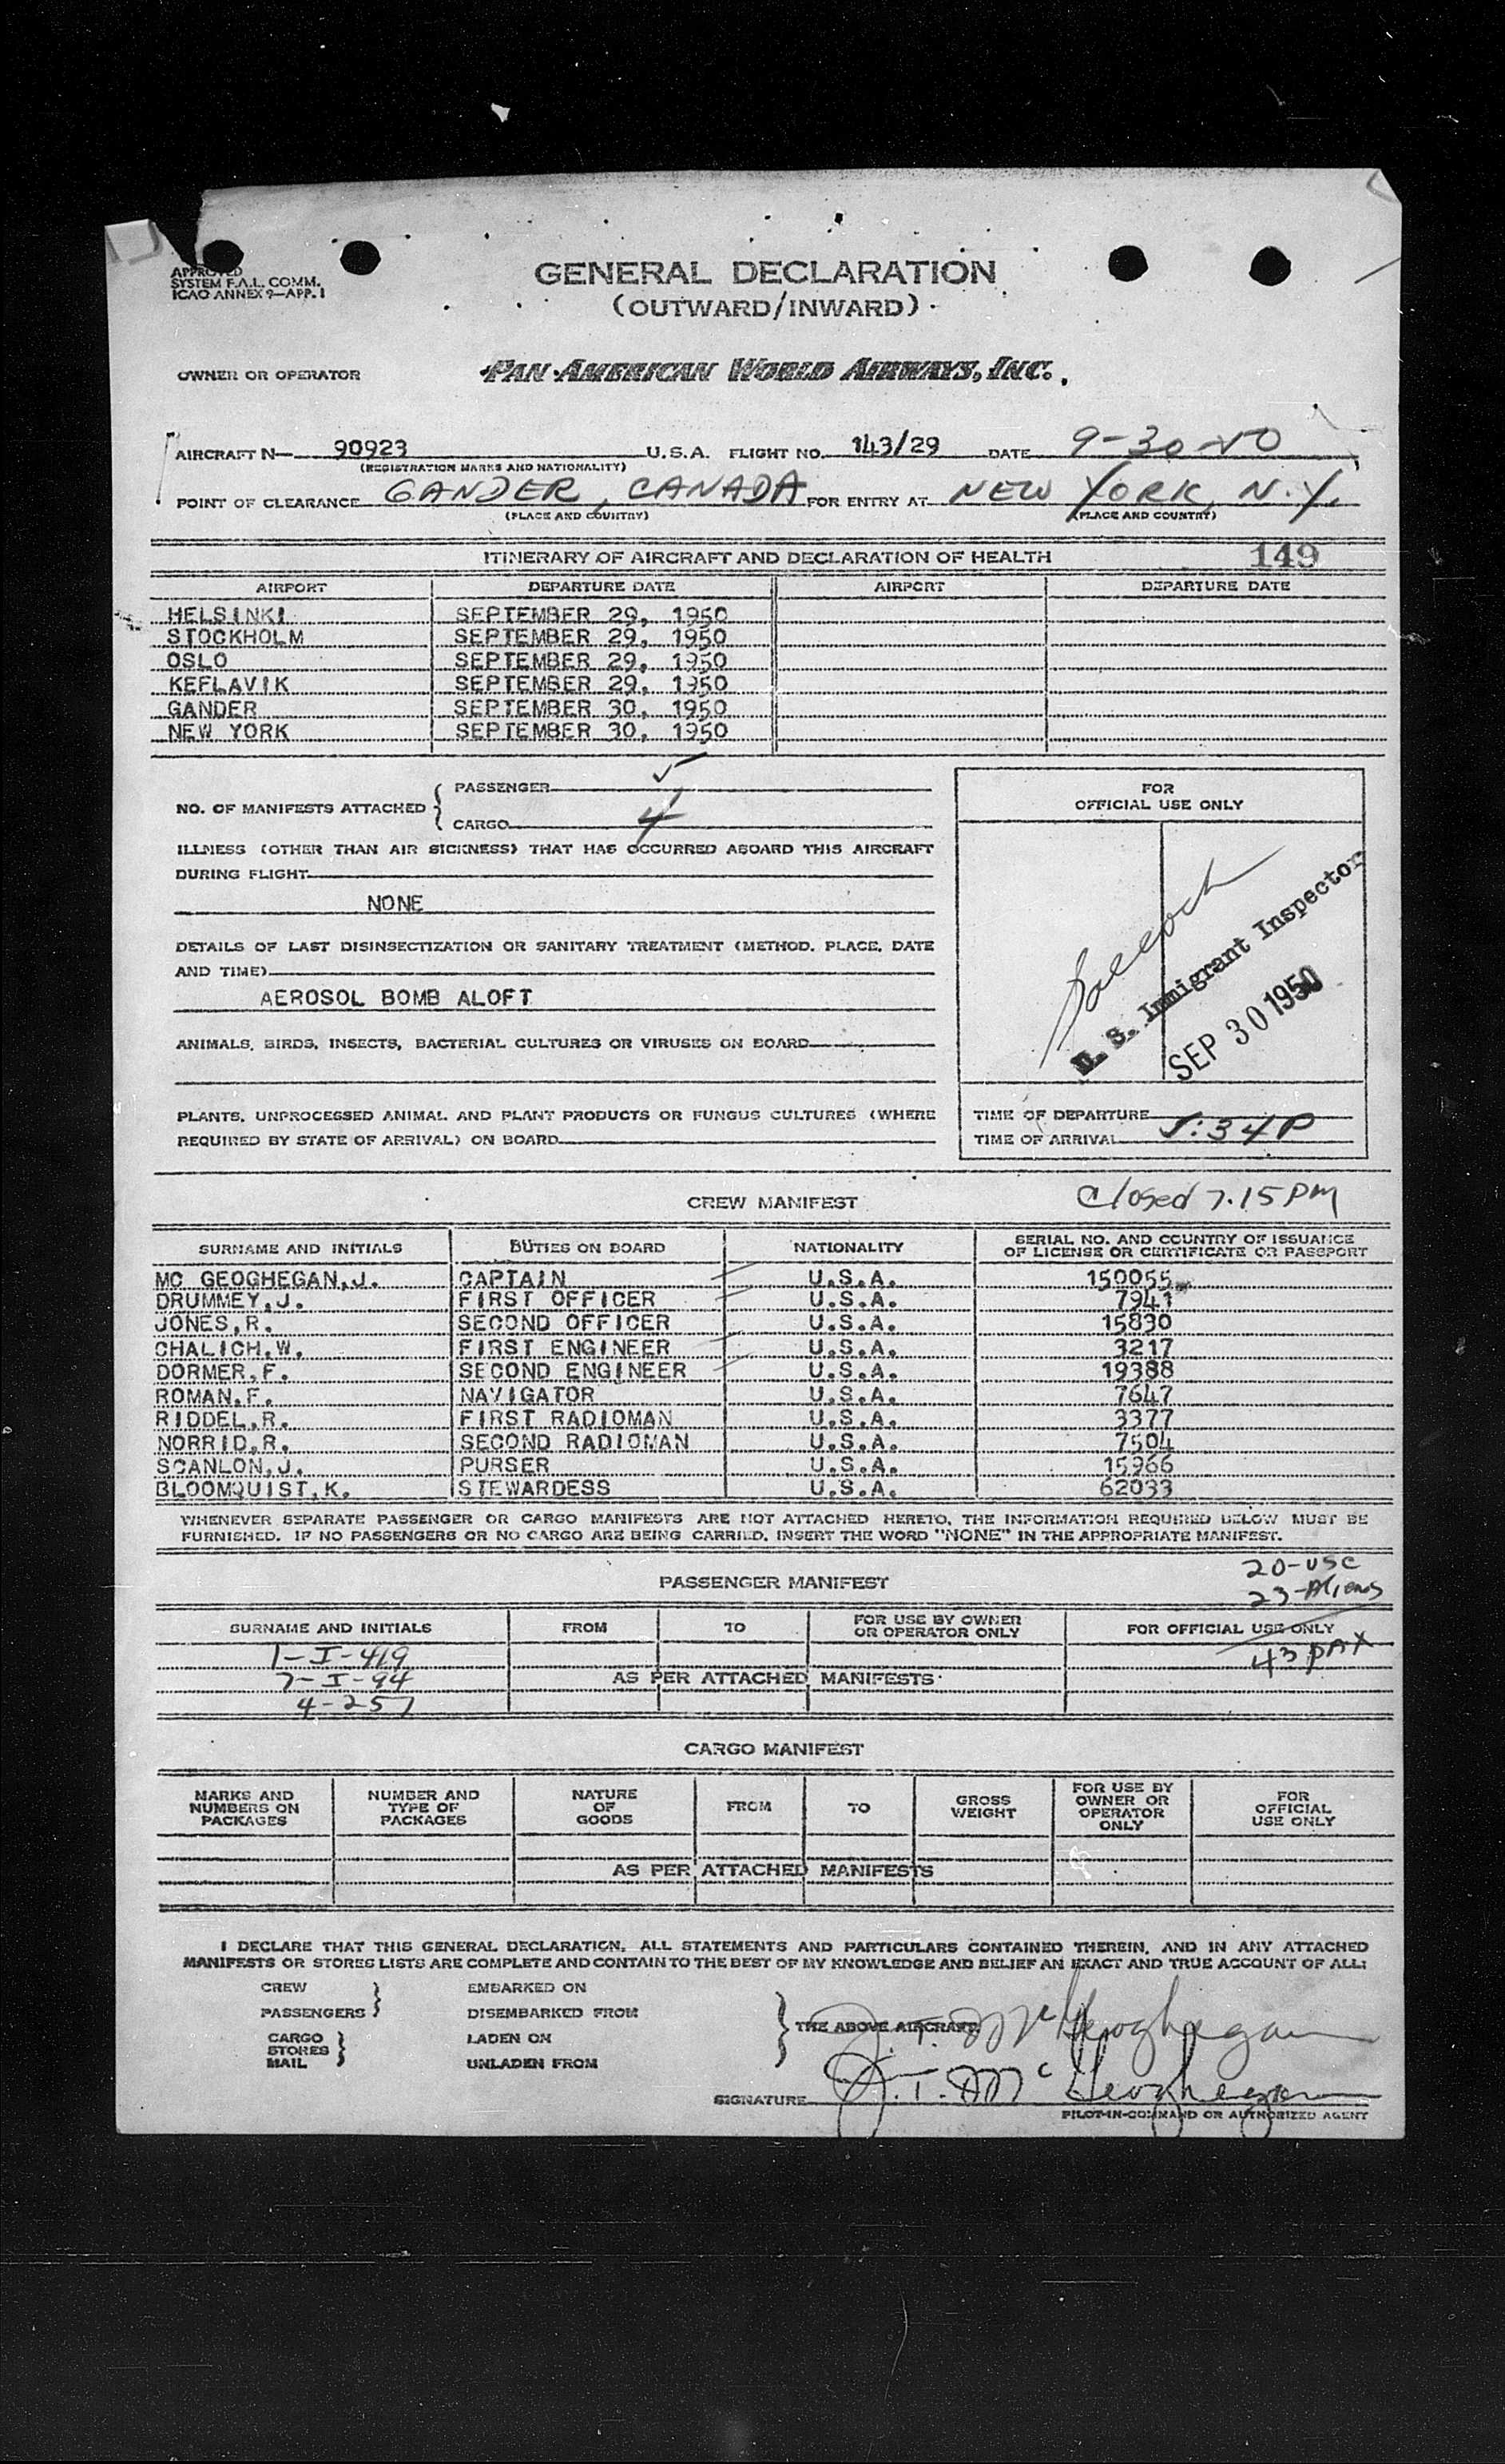 APPROVED
SYSTEM F.A.L. COMM.
ICAO ANNEX 9—APP. 1
GENERAL DECLARATION
(OUTWARD/INWARD)
OWNER OR OPERATOR PAN AMERICAN WORLD AIRWAYS, INC.
AIRCRAFT N— 90923 U.S.A. FLIGHT NO. 143/29 DATE 9-30-50
(REGISTRATION MARKS AND NATIONALITY)
POINT OF CLEARANCE GANDER, CANADA FOR ENTRY AT NEW YORK, N.Y.
(PLACE AND COUNTRY) (PLACE AND COUNTRY)
ITINERARY OF AIRCRAFT AND DECLARATION OF HEALTH 149
AIRPORT DEPARTURE DATE AIRPORT DEPARTURE DATE
HELSINKI SEPTEMBER 29, 1950
STOCKHOLM SEPTEMBER 29, 1950
OSLO SEPTEMBER 29, 1950
KEFLAVIK SEPTEMBER 29, 1950
GANDER SEPTEMBER 30, 1950
NEW YORK SEPTEMBER 30, 1950
NO. OF MANIFESTS ATTACHED { PASSENGER 5
CARGO 4
FOR
OFFICIAL USE ONLY
ILLNESS (OTHER THAN AIR SICKNESS) THAT HAS OCCURRED ABOARD THIS AIRCRAFT
DURING FLIGHT
NONE
DETAILS OF LAST DISINSECTIZATION OR SANITARY TREATMENT (METHOD, PLACE, DATE
AND TIME)
AEROSOL BOMB ALOFT
U. S. Immigrant Inspector
SEP 30 1950
ANIMALS, BIRDS, INSECTS, BACTERIAL CULTURES OR VIRUSES ON BOARD
PLANTS, UNPROCESSED ANIMAL AND PLANT PRODUCTS OR FUNGUS CULTURES (WHERE
REQUIRED BY STATE OF ARRIVAL) ON BOARD
TIME OF DEPARTURE
TIME OF ARRIVAL 5:34P
CREW MANIFEST Closed 7.15 PM
SURNAME AND INITIALS DUTIES ON BOARD NATIONALITY SERIAL NO. AND COUNTRY OF ISSUANCE
OF LICENSE OR CERTIFICATE OR PASSPORT
MC GEOGHEGAN,J. CAPTAIN U.S.A. 150055
DRUMMEY,J. FIRST OFFICER U.S.A. 7941
JONES,R. SECOND OFFICER U.S.A. 15830
CHALICH,W. FIRST ENGINEER U.S.A. 3217
DORMER,F. SECOND ENGINEER U.S.A. 19388
ROMAN,F. NAVIGATOR U.S.A. 7647
RIDDEL,R. FIRST RADIOMAN U.S.A. 3377
NORRID,R. SECOND RADIOMAN U.S.A. 7504
SCANLON,J. PURSER U.S.A. 15966
BLOOMQUIST,K. STEWARDESS U.S.A. 62033
WHENEVER SEPARATE PASSENGER OR CARGO MANIFESTS ARE NOT ATTACHED HERETO, THE INFORMATION REQUIRED BELOW MUST BE
FURNISHED. IF NO PASSENGERS OR NO CARGO ARE BEING CARRIED, INSERT THE WORD "NONE" IN THE APPROPRIATE MANIFEST.
20-USC
PASSENGER MANIFEST 23-Aliens
SURNAME AND INITIALS FROM TO FOR USE BY OWNER
OR OPERATOR ONLY FOR OFFICIAL USE ONLY
1-I-419 43 PAX
7-I-94 AS PER ATTACHED MANIFESTS
4-257
CARGO MANIFEST
MARKS AND
NUMBERS ON
PACKAGES NUMBER AND
TYPE OF
PACKAGES NATURE
OF
GOODS FROM TO GROSS
WEIGHT FOR USE BY
OWNER OR
OPERATOR
ONLY FOR
OFFICIAL
USE ONLY
AS PER ATTACHED MANIFESTS
I DECLARE THAT THIS GENERAL DECLARATION, ALL STATEMENTS AND PARTICULARS CONTAINED THEREIN, AND IN ANY ATTACHED
MANIFESTS OR STORES LISTS ARE COMPLETE AND CONTAIN TO THE BEST OF MY KNOWLEDGE AND BELIEF AN EXACT AND TRUE ACCOUNT OF ALL:
CREW EMBARKED ON
PASSENGERS DISEMBARKED FROM
CARGO LADEN ON
STORES
MAIL UNLADEN FROM
THE ABOVE AIRCRAFT J. T. McGeoghegan
SIGNATURE J. T. McGeoghegan
PILOT-IN-COMMAND OR AUTHORIZED AGENT